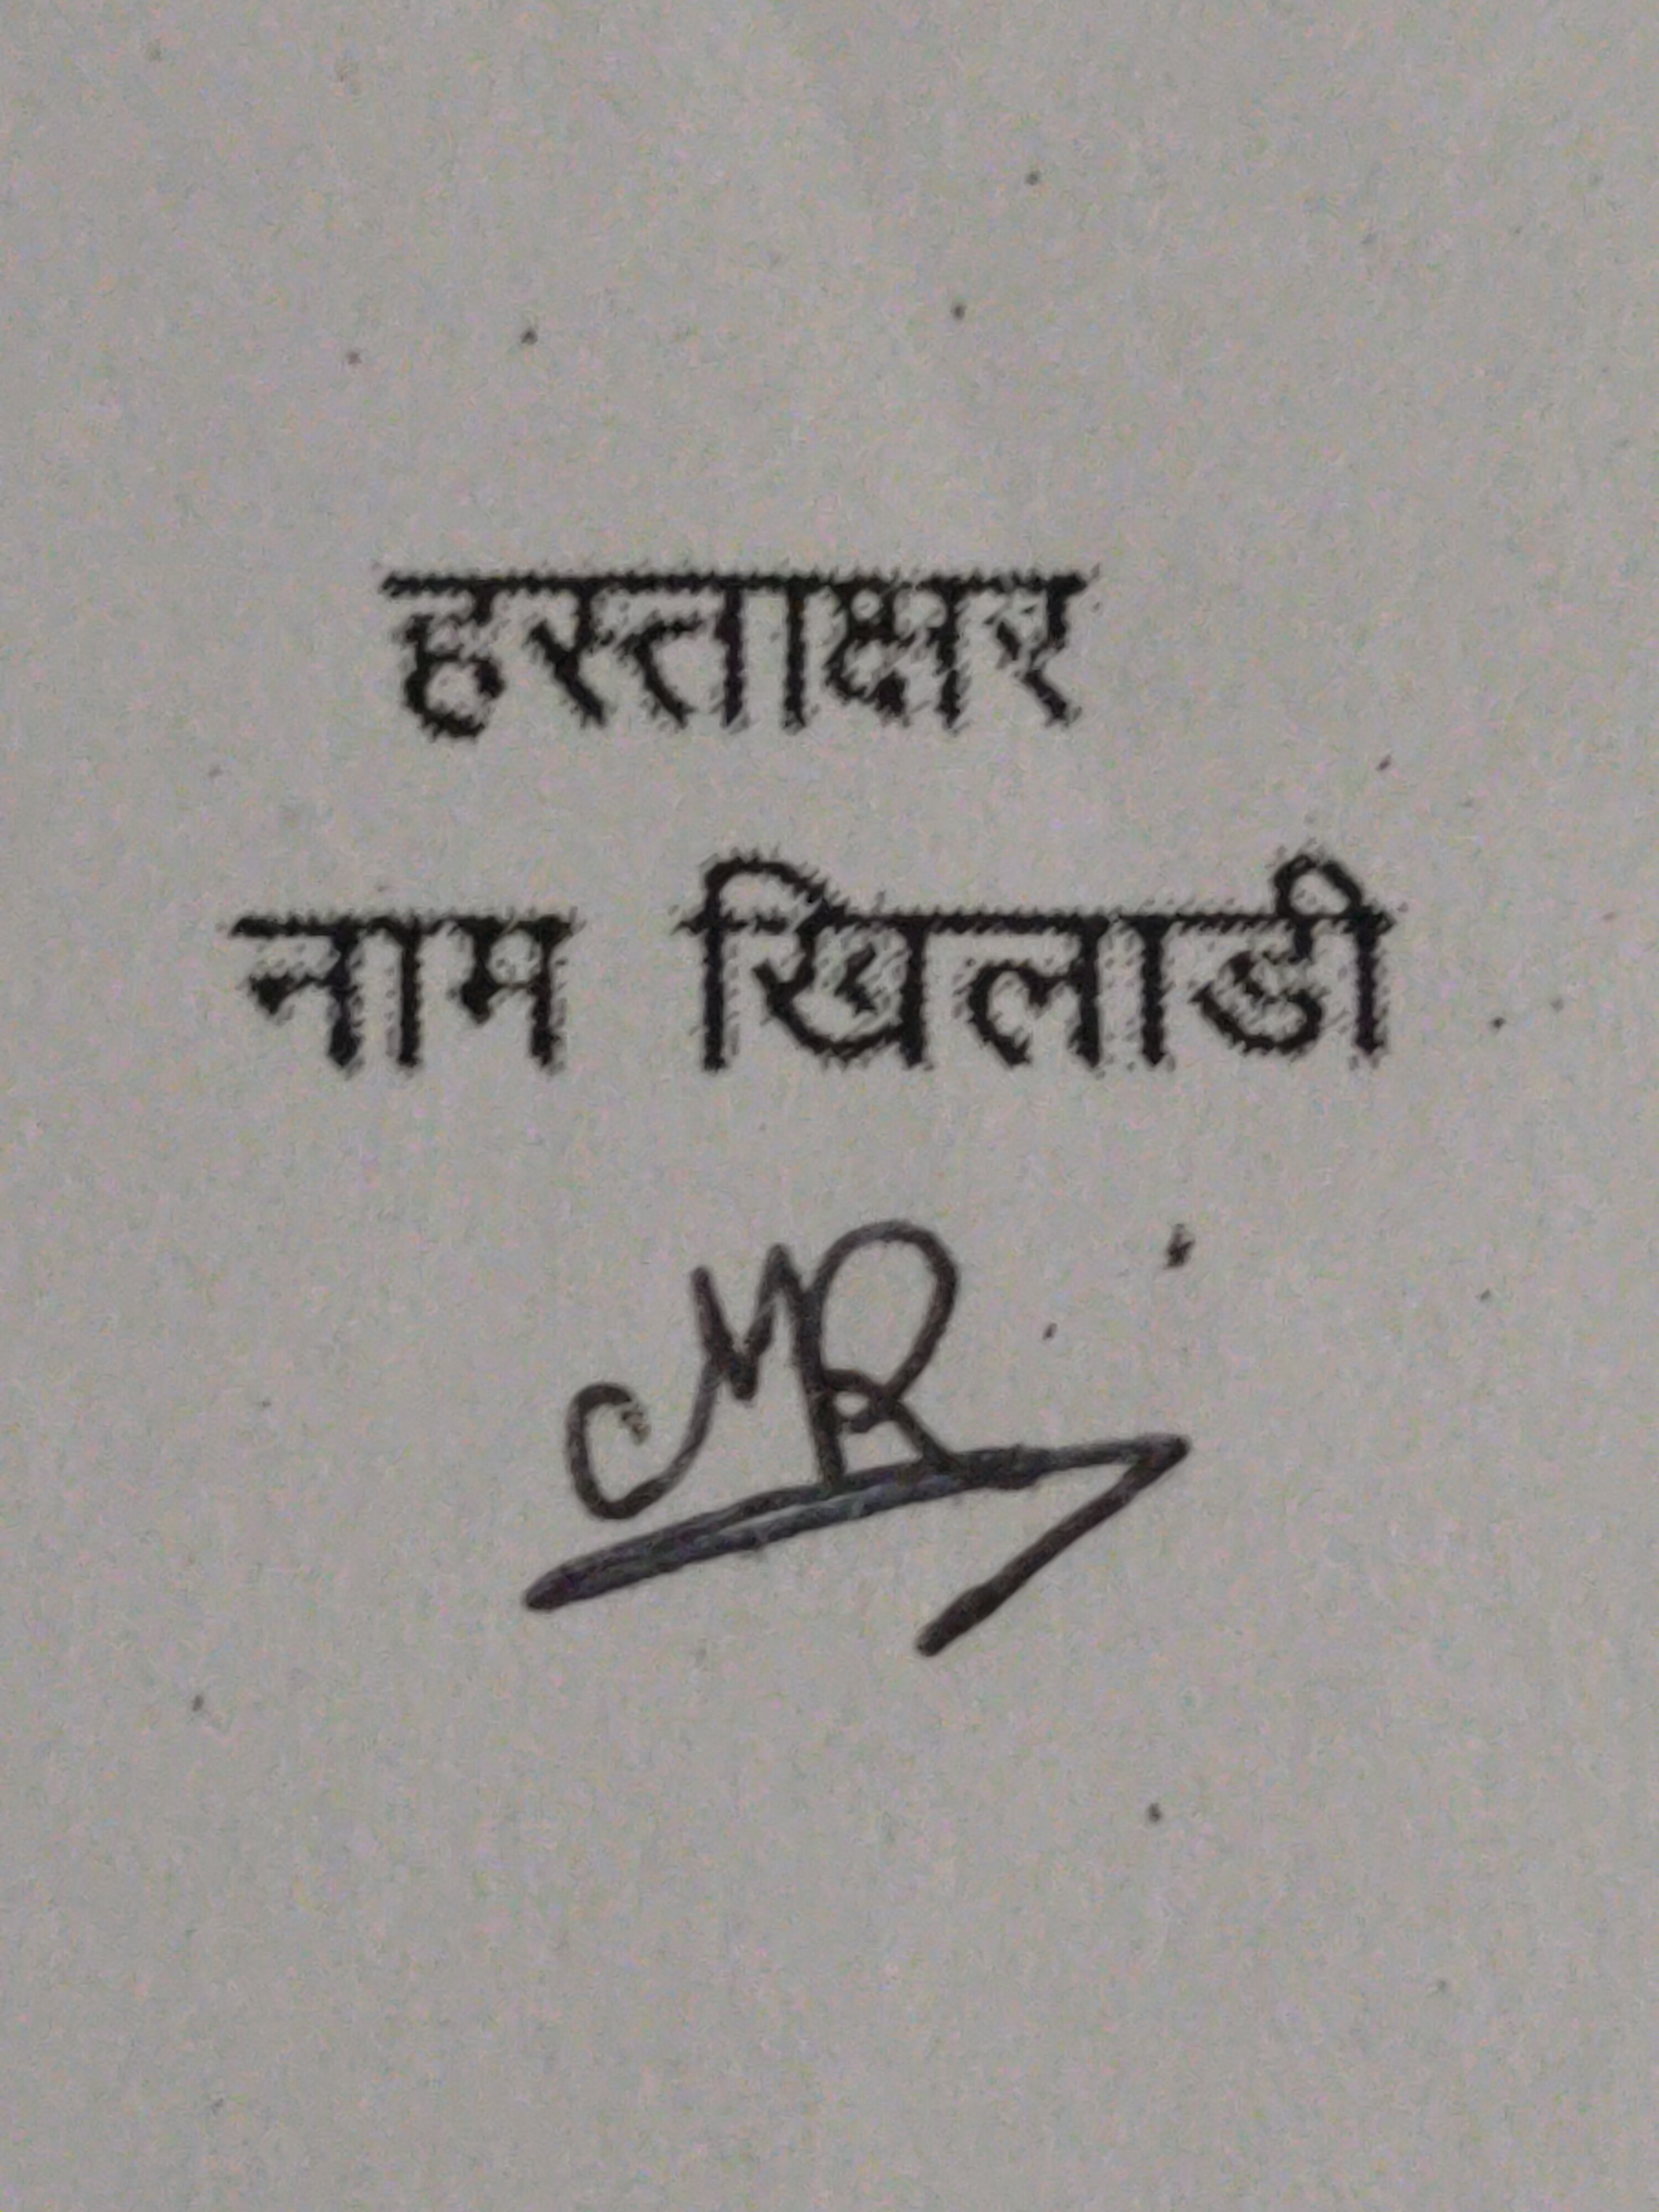 हस्ताक्षर
नाम खिलाडी
MR